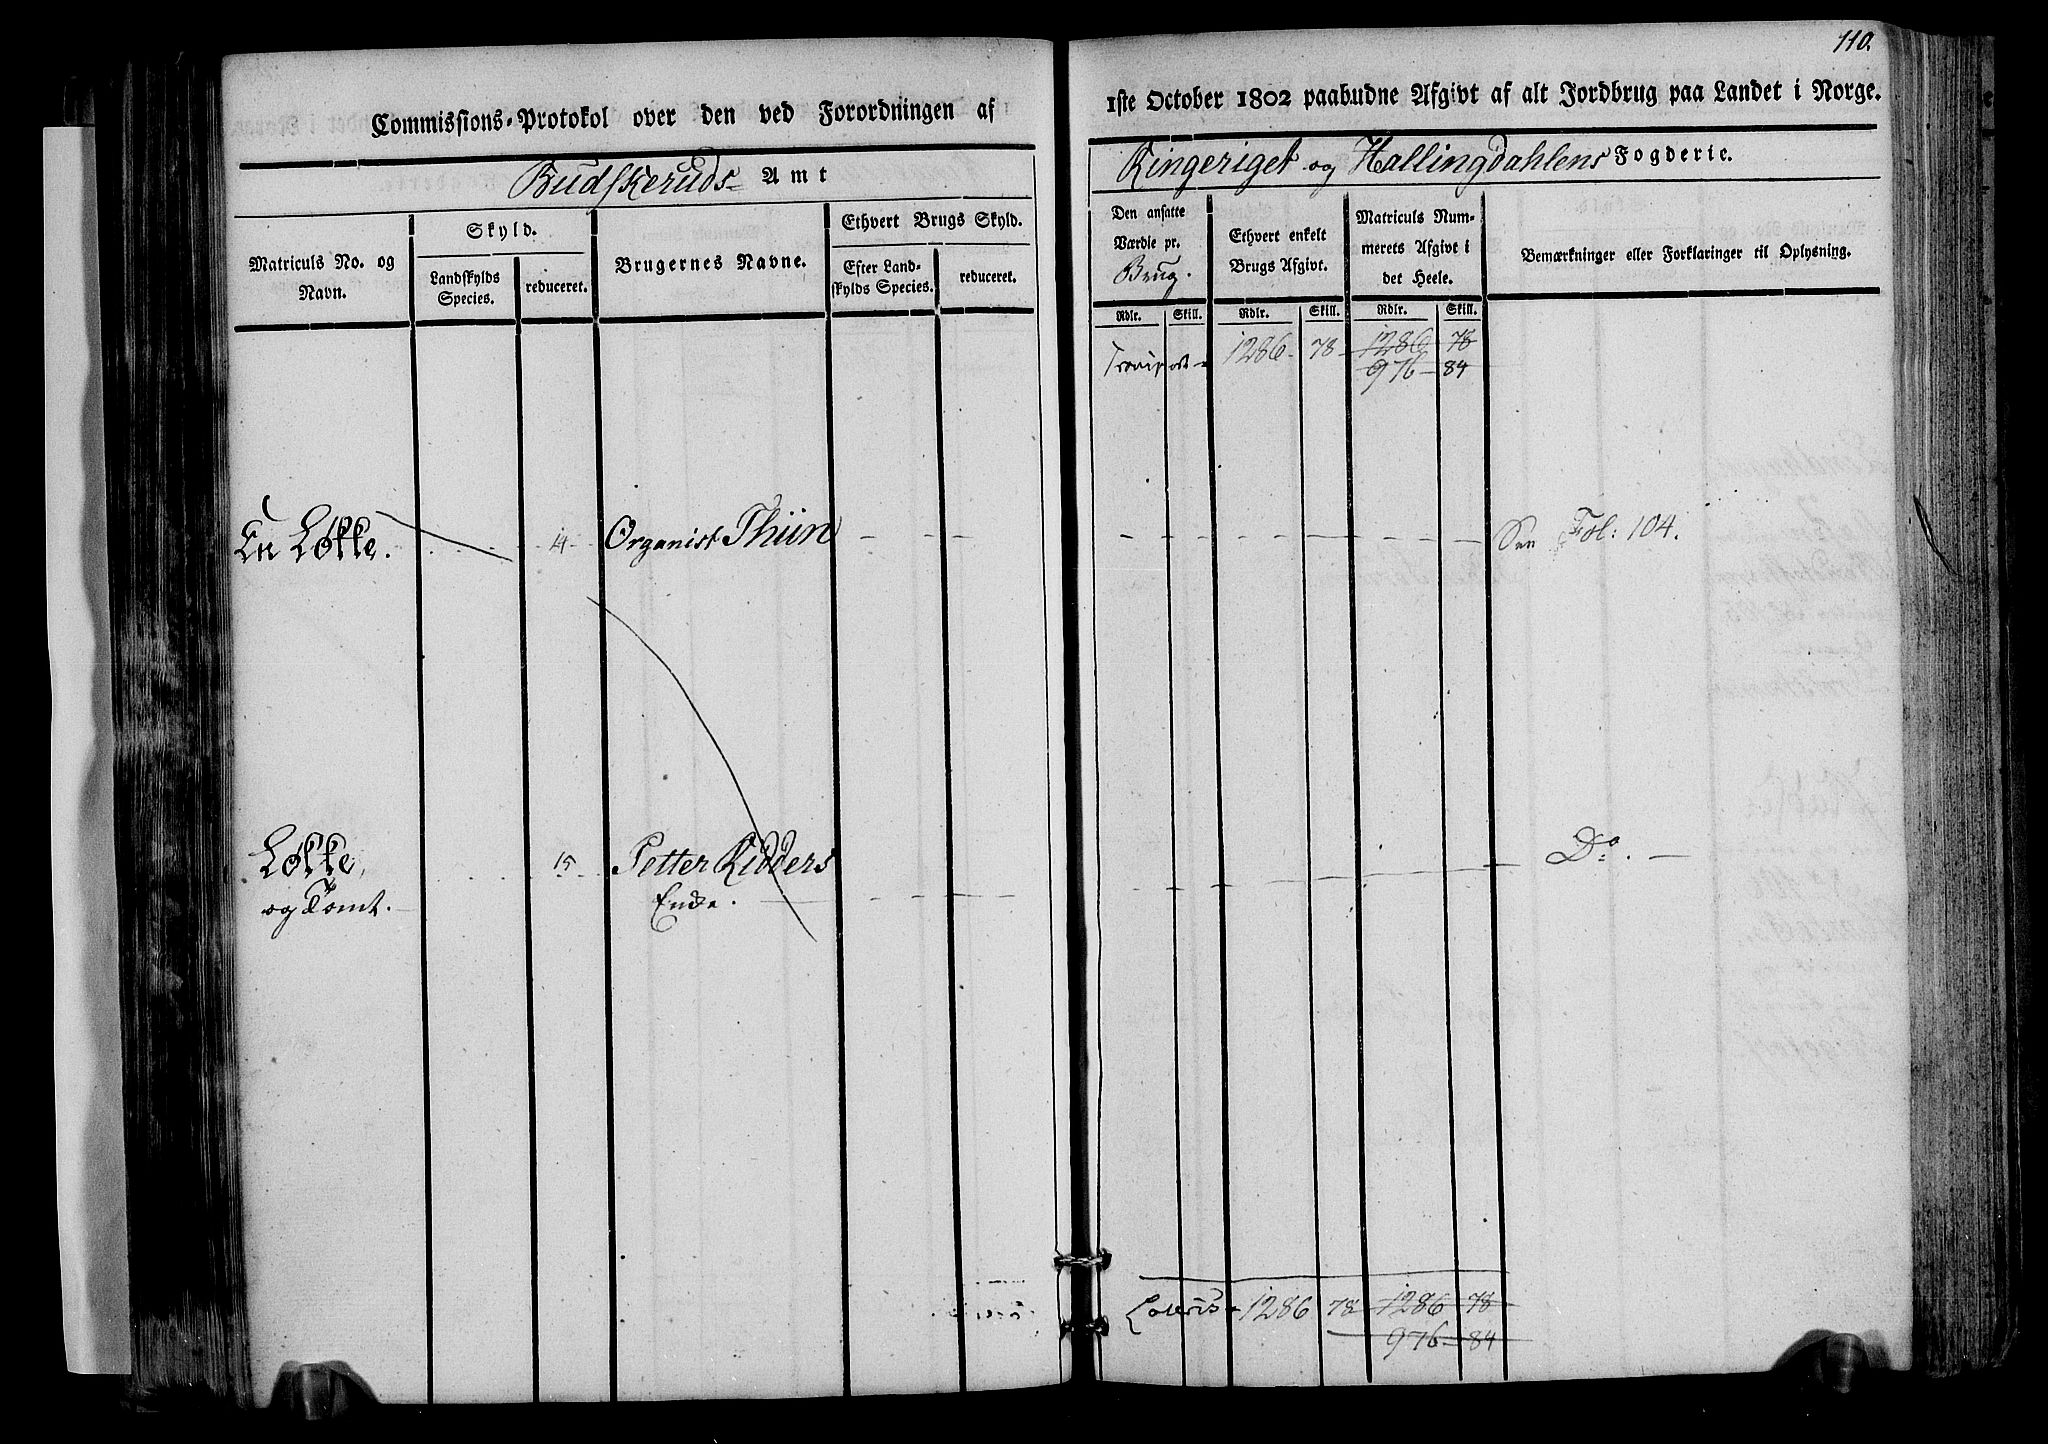 110.
Commissions-Protokol over den ved Forordningen af
1ste October 1802 paabudne Afgivt af alt Jordbrug paa Landet i Norge.
Budskeruds- Amt
Ringeriget og Hallingdahlens Fogderie.
Matriculs No. og Navn.
Skyld.
Landskylds Species.
reduceret.
Brugernes Navne.
Ethvert Brugs Skyld.
Efter Landskylds Species.
reduceret.
Den ansatte Værdie pr. Brug.
Ethvert enkelt Brugs Afgivt.
Matriculs Nummerets Afgivt i det Heele.
Bemærkninger eller Forklaringer til Oplysning.
Rdlr. Skill. Rdlr. Skill. Rdlr. Skill.
Transport 1286 78 1286 78
976 84
En Løkke. 14 Organist Thiin See Fol: 104.
Løkke, 15 Petter Ridders Do.
og Tomt. Enke.
Lateris 1286 78 1286 78
976 84